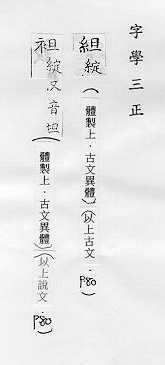 字學三正
組 綻（體製上．古文異體）（以上古文．P80）
袒 綻又音坦（體製上．古文異體）（以上說文．P80）